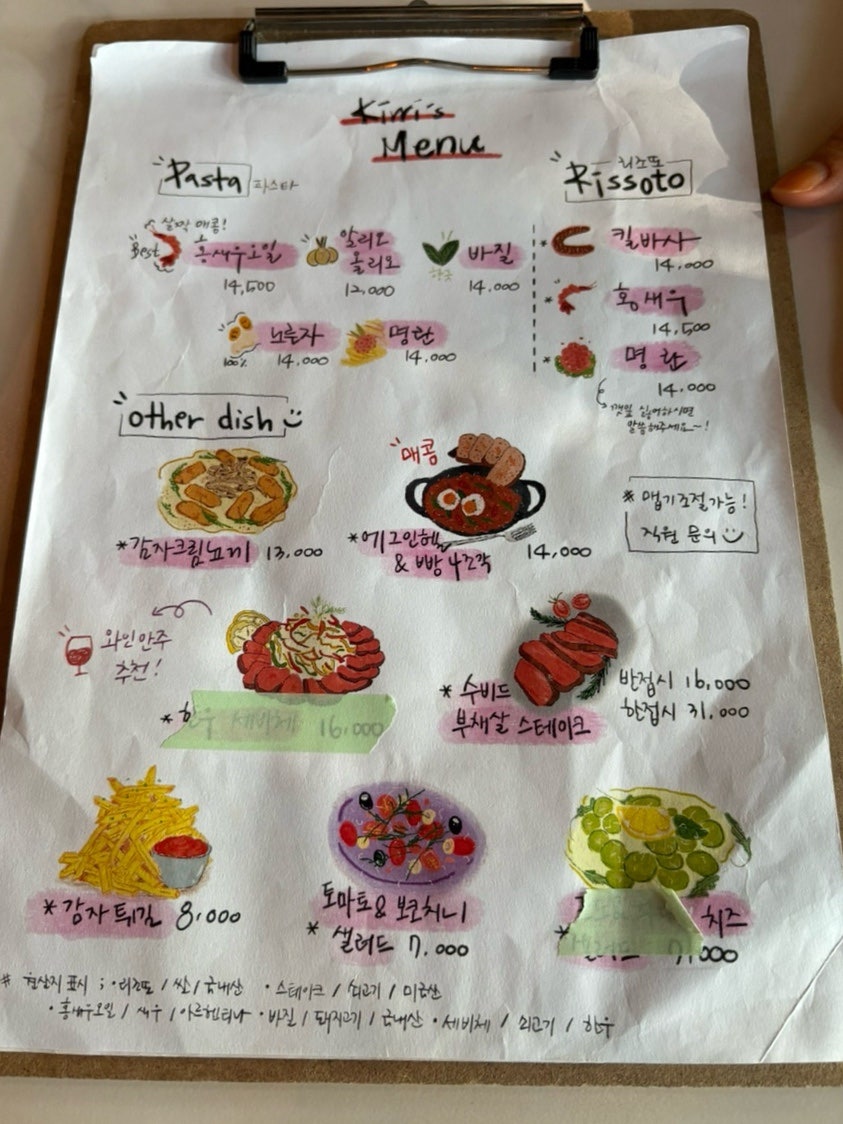 Kirri's
Menu
Pasta 파스타
살짝 매콤!
Best
홍새우오일
14,500
알리오
올리오
12,000
한국
바질
14,000
노른자
100%
14,000
명란
14,000
리조또
Rissoto
* 킬바사
14,000
* 홍새우
14,500
* 명란
14,000
깻잎 싫어하시면
말씀해주세요~!
other dish
* 감자크림뇨끼 13,000
매콤
* 에그인헬
& 빵 4조각
14,000
* 맵기조절가능!
직원 문의
와인안주
추천!
* 한우 세비체 16,000
* 수비드
부채살 스테이크
반접시 16,000
한접시 31,000
* 감자튀김 8,000
토마토 & 보코치니
* 샐러드 7,000
치즈
* 샐러드 7,000
* 원산지 표시 ; • 리조또 / 쌀 / 국내산 • 스테이크 / 쇠고기 / 미국산
• 홍새우오일 / 새우 / 아르헨티나 • 바질 / 돼지고기 / 국내산 • 세비체 / 쇠고기 / 한우